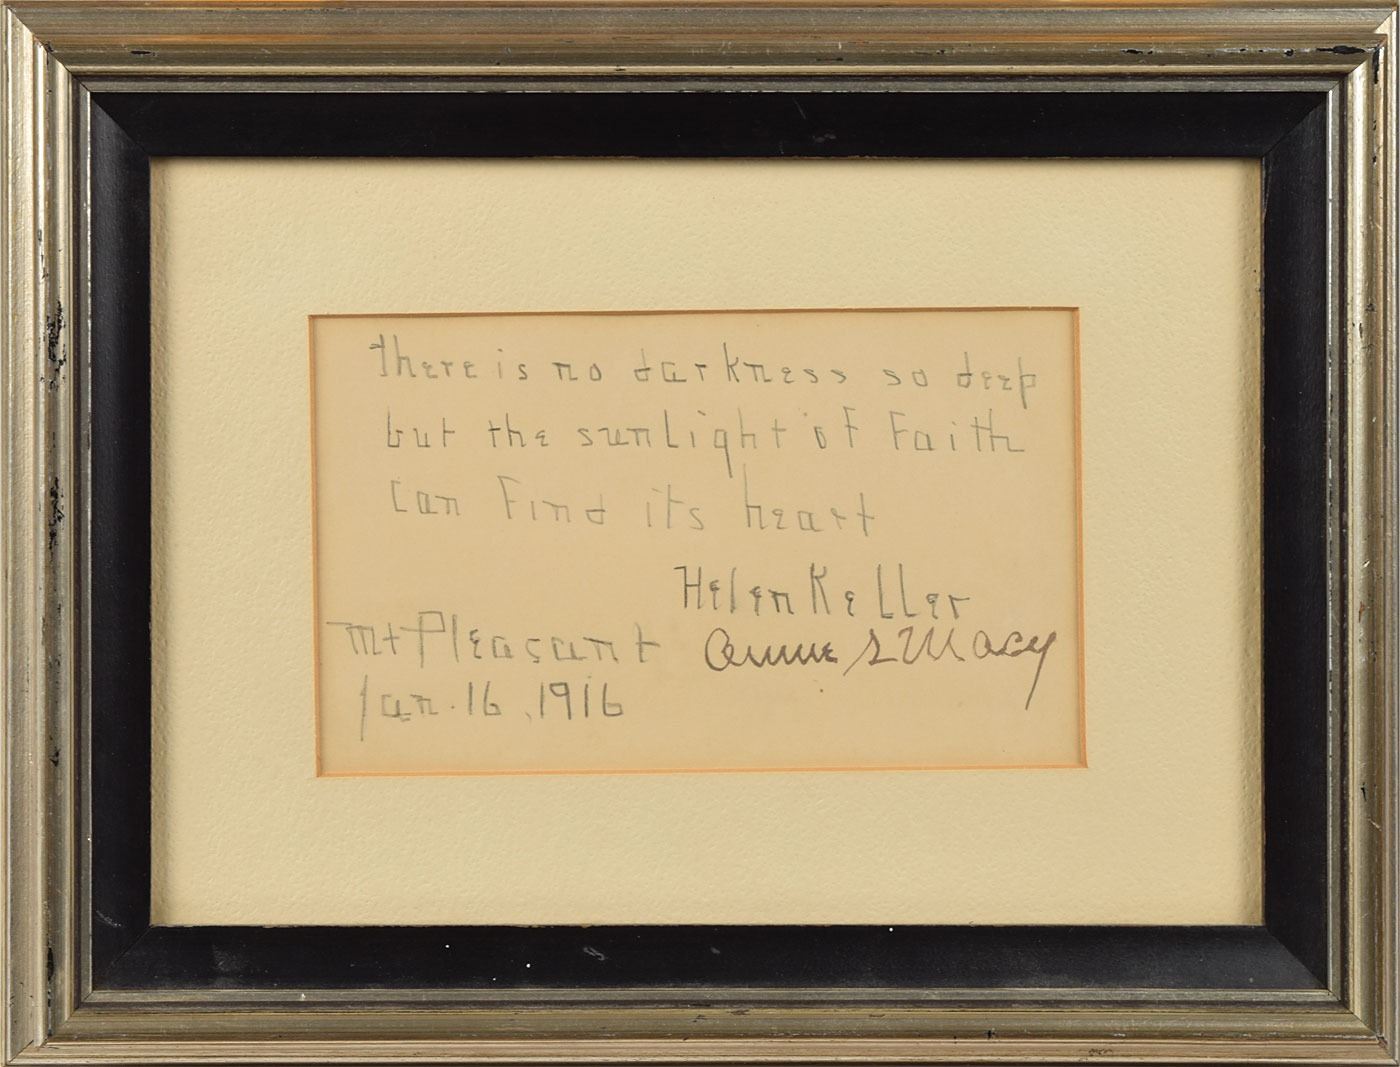 There is no darkness so deep
but the sunlight of Faith
can Find its heart
Helen Keller
Mt Pleasant Annie S Macy
Jan. 16, 1916